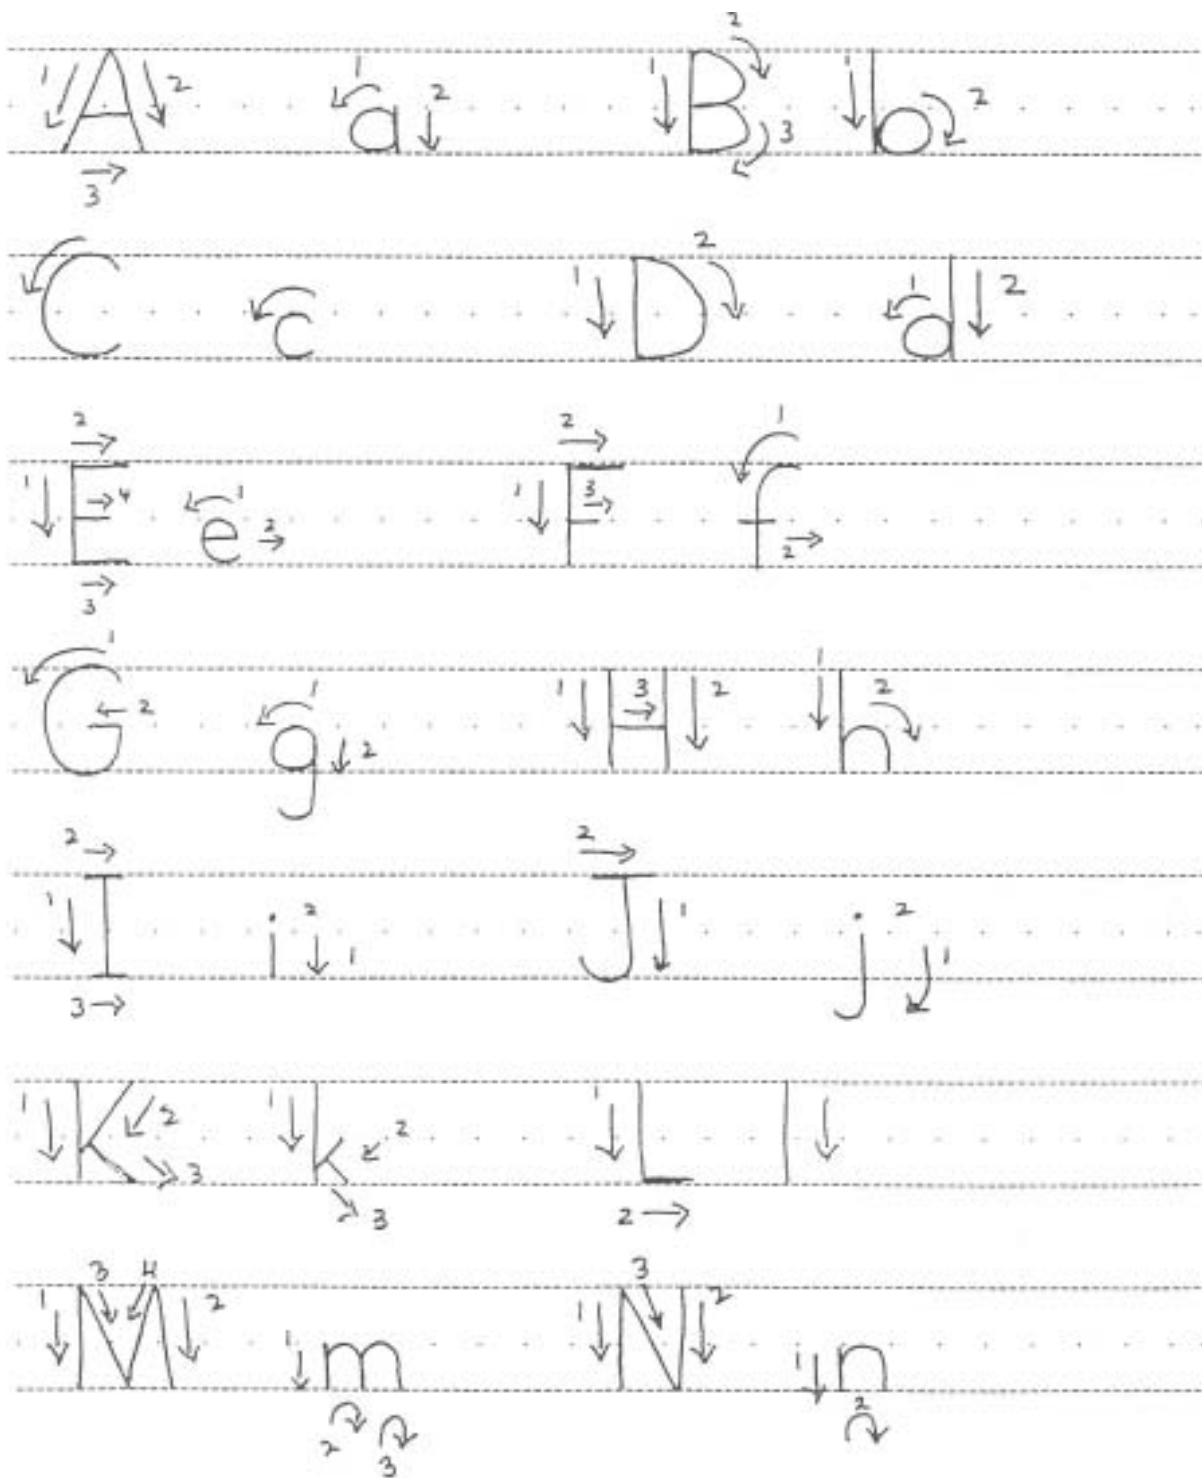 A a B b
C c D d
E e F f
G g H h
I i J j
K k L l
M m N n